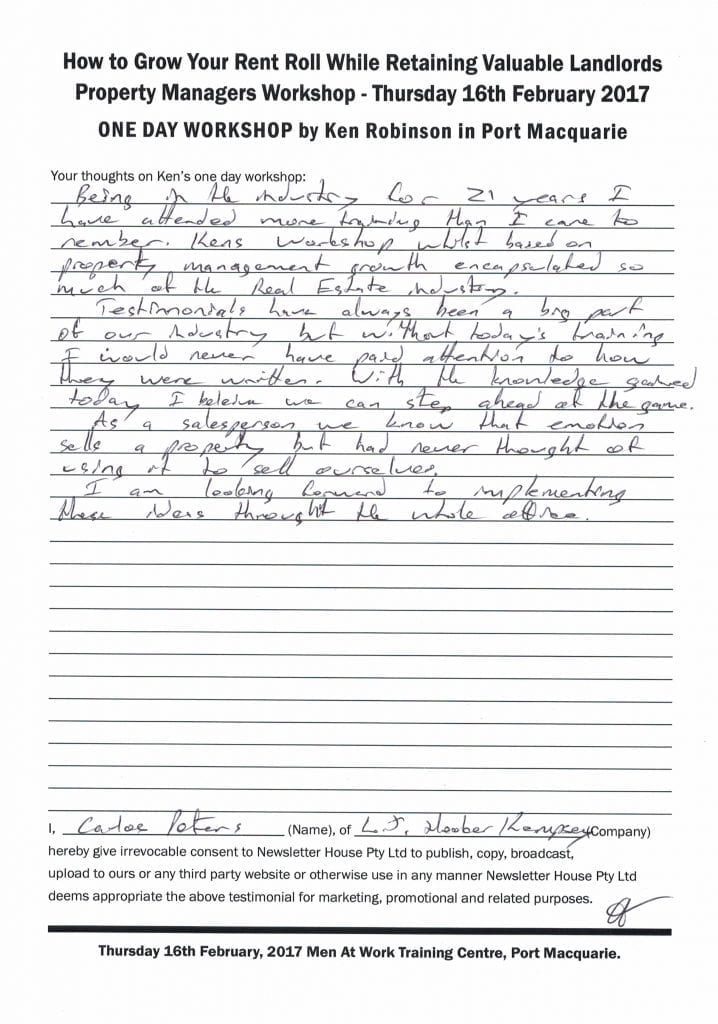 How to Grow Your Rent Roll While Retaining Valuable Landlords
Property Managers Workshop - Thursday 16th February 2017
ONE DAY WORKSHOP by Ken Robinson in Port Macquarie
Your thoughts on Ken's one day workshop:
Being in the industry for 21 years I
have attended more training than I care to
rember. Kens workshop whilst based on
property management growth encapsulated so
much of the Real Estate industry.
Testimonials have always been a big part
of our industry but without today's training
I would never have paid attention to how
they were written. With the knowledge gained
today I beleive we can step ahead of the game.
As a salesperson we know that emotion
sells a property but had never thought of
using it to sell ourselves.
I am looking forward to implementing
these ideas throught the whole office.
I, Carlos Peters (Name), of L.J. Hooker Kempsey (Company)
hereby give irrevocable consent to Newsletter House Pty Ltd to publish, copy, broadcast,
upload to ours or any third party website or otherwise use in any manner Newsletter House Pty Ltd
deems appropriate the above testimonial for marketing, promotional and related purposes.
Thursday 16th February, 2017 Men At Work Training Centre, Port Macquarie.